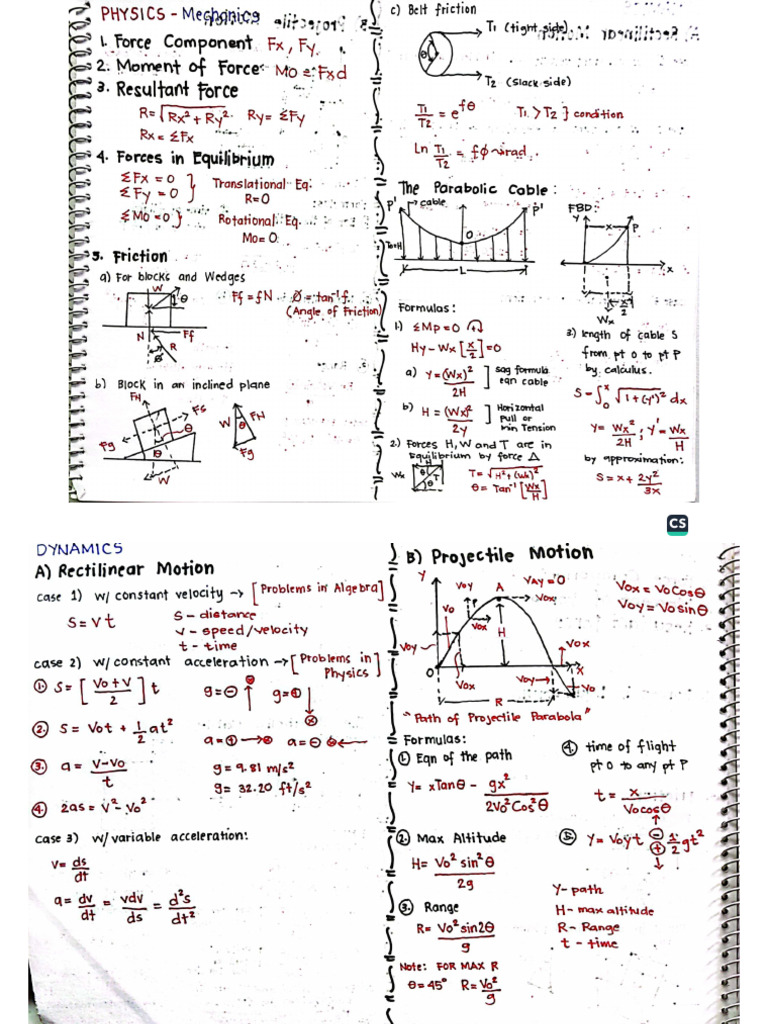 PHYSICS - Mechanics
1. Force Component Fx, Fy
2. Moment of Force: Mo = Fxd
3. Resultant Force
R = √Rx² + Ry²  Ry = ΣFy
Rx = ΣFx
4. Forces in Equilibrium
ΣFx = 0
ΣFy = 0
} Translational Eq.
R=0
ΣMo = 0 } Rotational Eq.
Mo = 0
5. Friction
a) For blocks and Wedges
W
θ
Ff = fN  Ø = tan⁻¹f
(Angle of Friction)
N
Ff
R
Ø
b) Block in an inclined plane
FN
Fs
θ
Fg
θ
W
W
θ
FN
Fg
c) Belt friction
T1 (tight side)
θ
T2 (slack side)
T1/T2 = e^fθ  T1 > T2 } condition
Ln T1/T2 = fØ → rad.
The Parabolic Cable:
P' → cable P'
O
To=H
L
FBD:
y
x
P
x
x/2
Wx
Formulas:
1.) ΣMp = 0
Hy - Wx [x/2] = 0
a) Y = (Wx)²/2H ] sag formula
eqn cable
b) H = (Wx)²/2y ] Horizontal
Pull or
Min Tension
2) Forces H, W and T are in
Equilibrium by force Δ
H
Wx
θ
T
θ
T = √H² + (Wx)²
θ = Tan⁻¹ [Wx/H]
3) length of cable S
from pt O to pt P
by calculus.
S = ∫₀ˣ √1 + (y')² dx
Y = Wx²/2H ; Y' = Wx/H
by approximation:
S = x + 2y²/3x
CS
DYNAMICS
A) Rectilinear Motion
case 1) w/ constant velocity → [Problems in Algebra]
S = vt
S - distance
v - speed/velocity
t - time
case 2) w/ constant acceleration → [Problems in
Physics]
① S = [Vo+V/2] t  g = ⊖ ↑  g = ⊕ ↓
② S = Vot + 1/2 at²
a = ⊕ →  a = ⊖ ←
③ a = V-Vo/t
g = 9.81 m/s²
g = 32.20 ft/s²
④ 2as = V² - Vo²
case 3) w/ variable acceleration:
v = ds/dt
a = dv/dt = vdv/ds = d²s/dt²
B) Projectile Motion
Y
Voy
A
VAy = 0
Vox
Vo
Vox
H
Voy
O
Vox
Vox
X
Voy
Vo
R
Vox = Vo Cosθ
Voy = Vo sinθ
"Path of Projectile Parabola"
Formulas:
① Eqn of the path
Y = xTanθ - gx²/2Vo²Cos²θ
② Max Altitude
H = Vo² sin²θ/2g
③ Range
R = Vo² sin2θ/g
Note: FOR MAX R
θ = 45°  R = Vo²/g
④ time of flight
pt O to any pt P
t = x/Vocosθ
⑤ Y = Voyt ⊖⊕ 1/2 gt²
Y - path
H - max altitude
R - Range
t - time